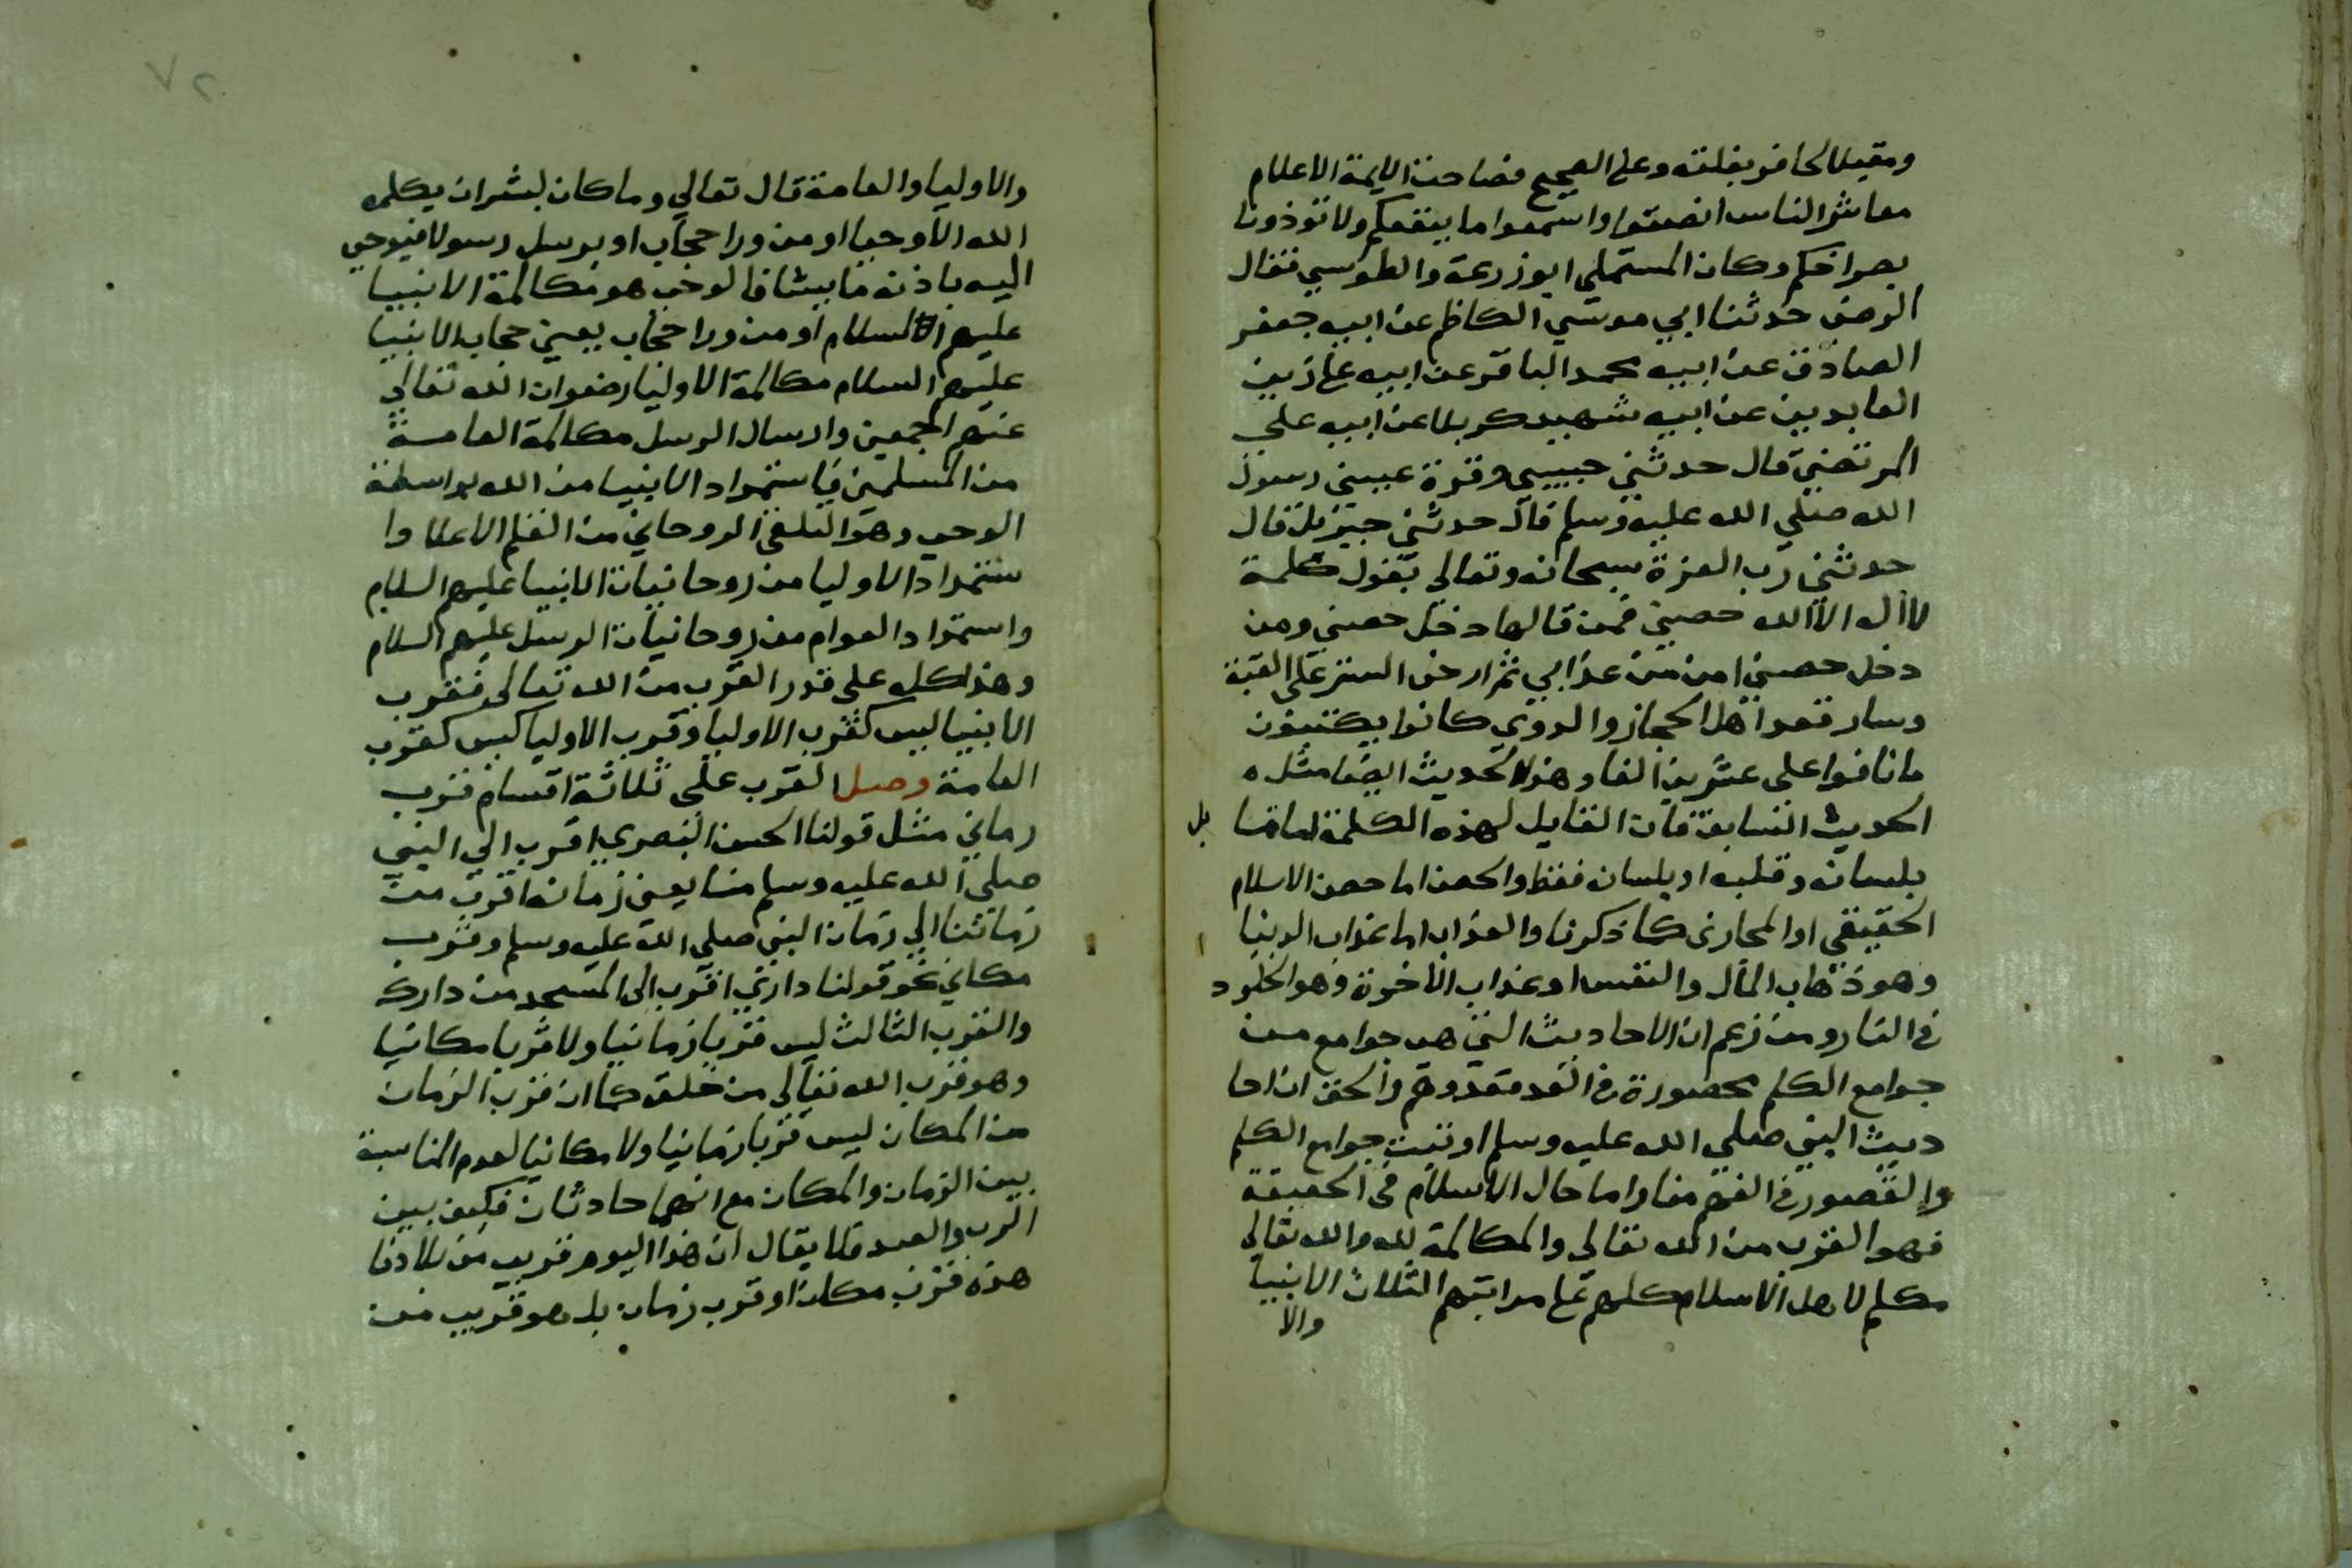 ومقبلا لحافر بغلته وعلى الصحيح فصاحت الايمة الاعلام
معاشر الناس انصتوا واسمعوا ما ينفعكم ولا توذونا
بصراخكم وكان المستملي ابو زرعة والطوسي فقال
الرضى حدثنا ابي موسي الكاظم عن ابيه جعفر
الصادق عن ابيه محمد الباقر عن ابيه على زين
العابدين عن ابيه شهيد كربلا عن ابيه علي
المرتضي قال حدثني حبيبي وقرة عيني رسول
الله صلي الله عليه وسلم قال حدثني جبريل قال
حدثني رب العزة سبحانه وتعالي يقول كلمة
لا اله الا الله حصني فمن قالها دخل حصني ومن
دخل حصني امن من عذابي ثم ارخى الستر على القبة
وسار فعد اهل المحابر والدوي كانوا يكتبون
ما نافوا على عشرين الفا وهذا الحديث ايضا مثل
الحديث السابق فان القايل لهذه الكلمة اما قا يل
بلسانه وقلبه او بلسانه فقط والحصن اما حصن الاسلام
الحقيقي او المجازى كما ذكرنا والعذاب اما عذاب الدنيا
وهو ذهاب المال والنفس او عذاب الاخرة وهو الخلود
فى النار ومن زعم ان الاحاديث التي هي جوامع من
جوامع الكلم محصورة فى العد فقد وهم والحق ان احا
ديث النبي صلي الله عليه وسلم اوتيت جوامع الكلم
والقصور فى الفهم منا واما حال الاسلام فى الحقيقة
فهو القرب من الله تعالى والمكالمة لله والله تعالى
مكلم لاهل الاسلام كلهم على مراتبهم الثلاث الانبيا
والا
٧٢
والاوليا والعامة قال تعالي وما كان لبشر ان يكلمه
الله الا وحيا او من ورا حجاب او يرسل رسولا فيوحي
اليه باذنه ما يشا فالوحي هو مكالمة الانبيا
عليهم السلام او من ورا حجاب يعني حجاب الانبيا
عليهم السلام مكالمة الاوليا رضوان الله تعالي
عنهم اجمعين وارسال الرسل مكالمة العامة
من المسلمين فاستمداد الانبيا من الله بواسطة
الوحي وهو التلقى الروحاني من القلم الاعلا وا
ستمداد الاوليا من روحانيات الانبيا عليهم السلام
واستمداد العوام من روحانيات الرسل عليهم السلام
وهذا كله على قدر القرب من الله تعالى فقرب
الانبيا ليس كقرب الاوليا وقرب الاوليا ليس كقرب
العامة وصل القرب على ثلاثة اقسام قرب
زماني مثل قولنا الحسن البصري اقرب الي النبي
صلي الله عليه وسلم منا يعني زمانه اقرب من
زماننا الي زمان النبي صلي الله عليه وسلم وقرب
مكاني نحو قولنا داري اقرب الى المسجد من دارك
والقرب الثالث ليس قربا زمانيا ولا قربا مكانيا
وهو قرب الله تعالى من خلقه كما ان قرب الزمان
من المكان ليس قربا زمانيا ولا مكانيا لعدم المناسبة
بين الزمان والمكان مع انهما حادثان فكيف بين
الرب والعبد فلا يقال ان هذا اليوم قريب من بلادنا
هذه قرب مكان او قرب زمان بل هو قريب من